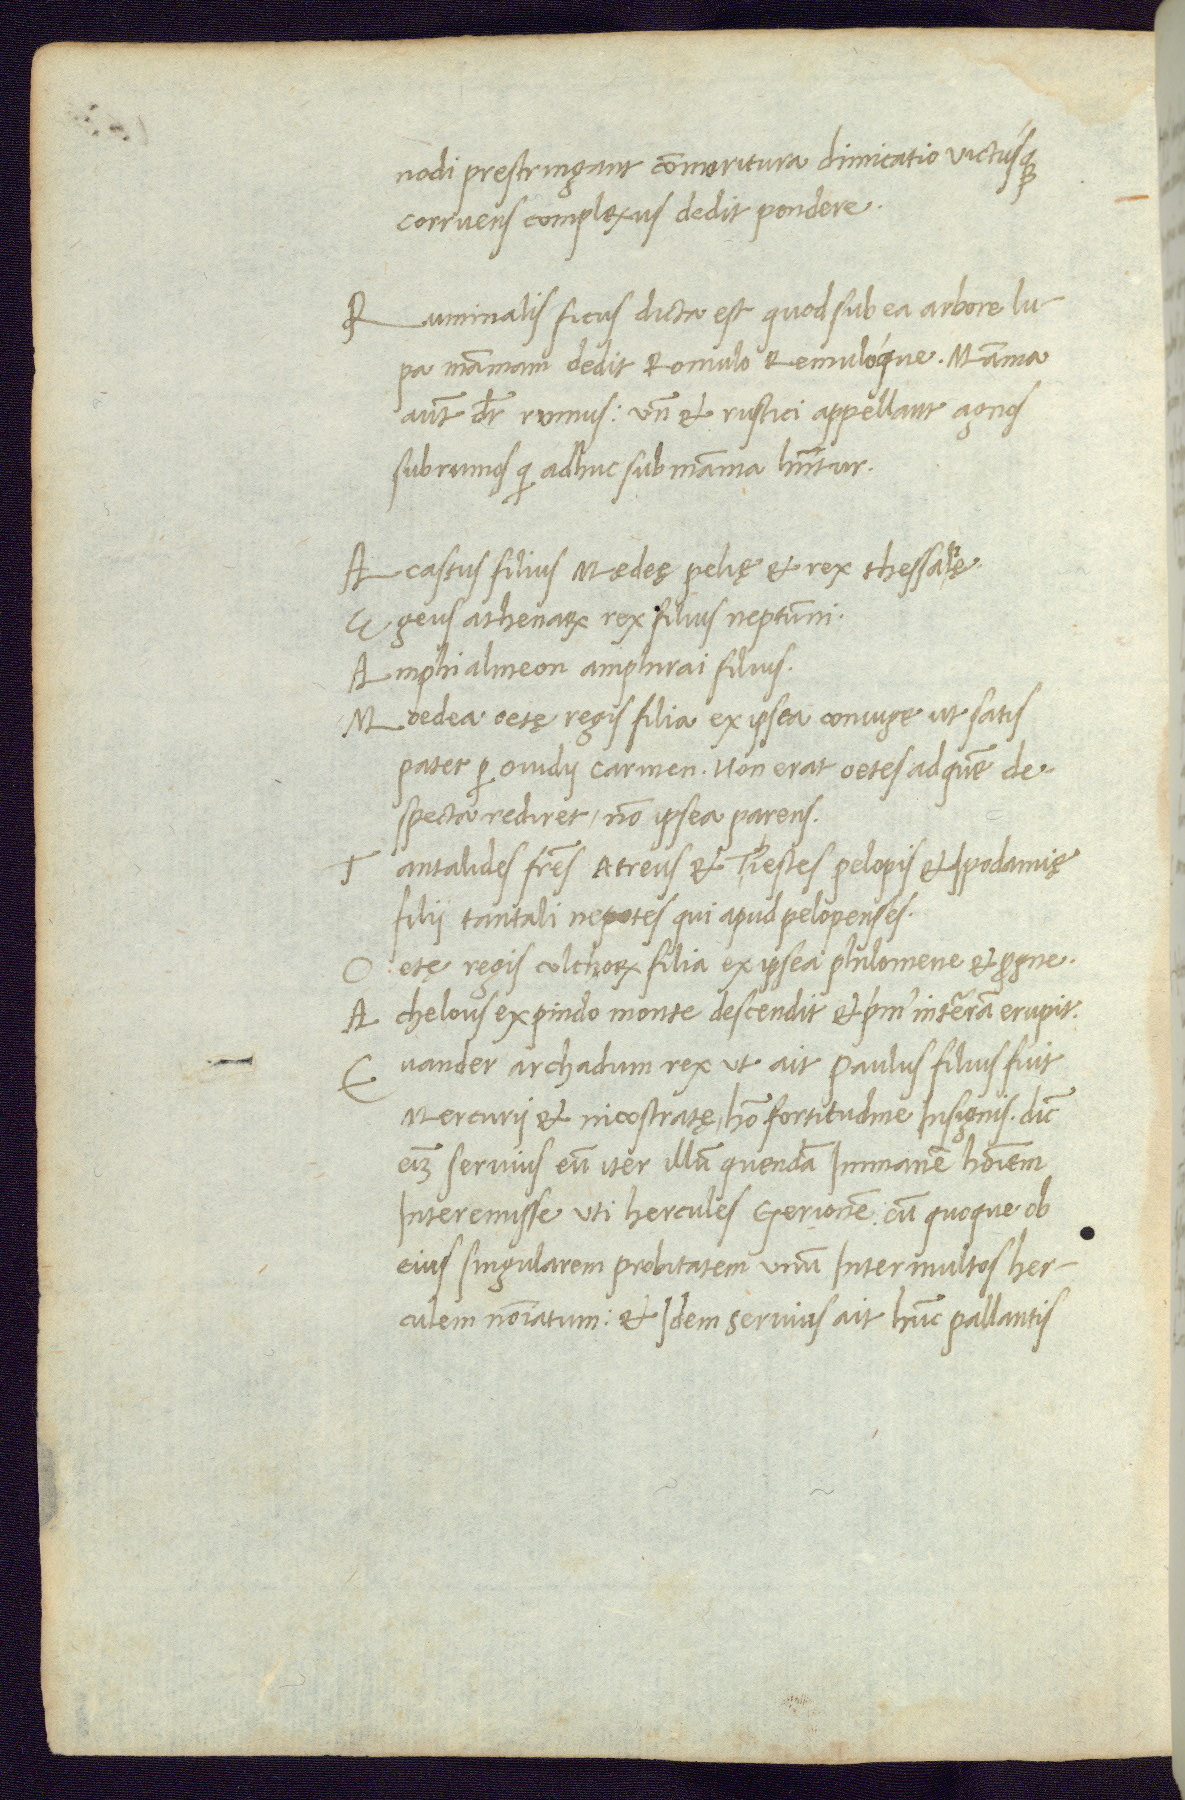 nodi prestringant cōmoritura dimicatio victusq́
corruens complexus dedit pondere.
Ruminalis ficus dicta est quod sub ea arbore lu-
pa māmam dedit Romulo Remulóque. Māma
aūt dr̄ rumus: vn̄ & rustici appellant agnos
subrumos q adhuc sub māma hn̄tur.
Acastus filius Medeę pelię & rex thessalię.
Egeus athenaꝝ rex filius neptūni.
Amphialmeon amphirai filius.
Moedea oetę regis filia ex ipsea coniuge ut satis
patet ꝑ ouidij carmen. Non erat oetes ad quē de-
specta rediret, nō ipsea parens.
Tantalides fr̄es Atreus & Tiestes pelopis & Ipodamię
filij tantali nepotes qui apud pelopenses.
Oetę regis colchoꝝ filia ex ipsea philomene & progne.
Achelous ex pindo monte descendit & pm̄ in terā erupit.
Euander archadum rex ut ait Paulus filius fuit
Mercurij & nicostratę, hō fortitudine Insignis. dic̄
eīꝫ seruius eū iter illū quendā Inmanē hoīem
Interemisse uti hercules Gerionē: cū quoque ob
eius singularem probitatem vnū Inter multos her-
culem noīatum: & Idem seruius ait hūc pallantis